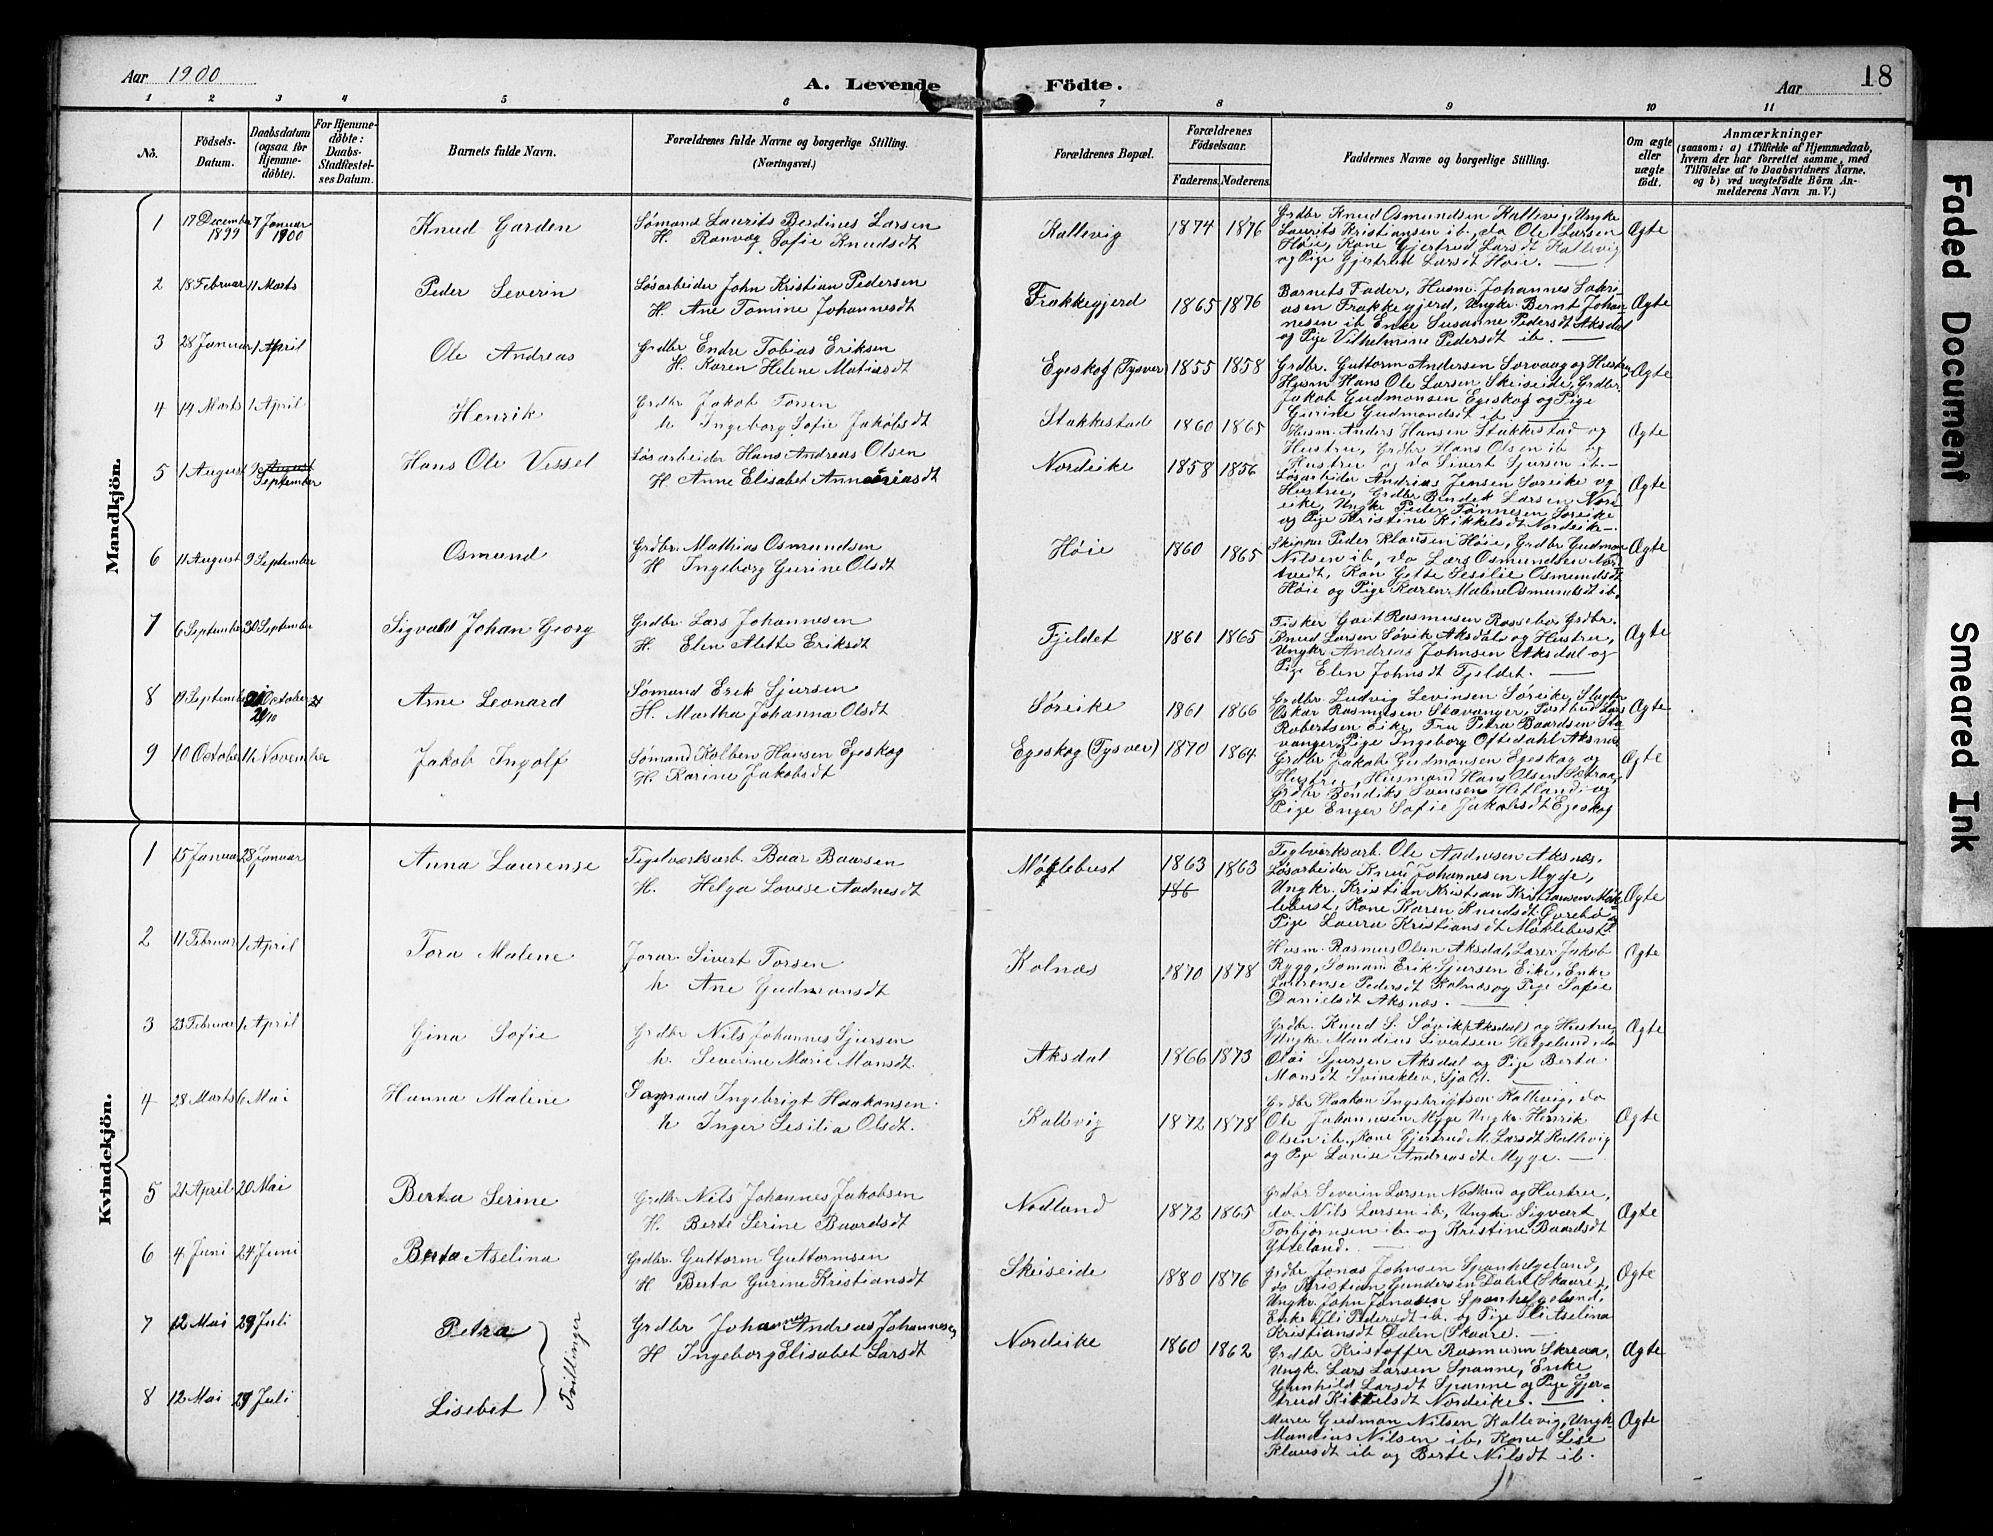 Aar 1900
A. Levende Födte.
Aar
18
1 2 3 4 5 6 7 8 9 10 11
No.
Födsels-Datum.
Daabsdatum (ogsaa for Hjemmedöbte).
For Hjemmedöbte: Daabs-Stadfæstelses Datum.
Barnets fulde Navn.
Forældrenes fulde Navne og borgerlige Stilling. (Næringsvei.)
Forældrenes Bopæl.
Forældrenes Födselsaar.
Faderens. Moderens.
Faddernes Navne og borgerlige Stilling.
Om ægte eller uægte födt.
Anmærkninger
(saasom: a) i Tilfælde af Hjemmedaab, hvem der har forrettet samme, med Tilföielse af to Daabsvidners Navne, og b) ved uægtefödte Börn Anmelderens Navn m. V.)
Mandkjön.
1 17 December 1899 7 Januar 1900 Knud Garden
Sømand Laurits Berdines Larsen
H. Ranvog Sofie Knudsdt
Kallevig 1874 1876
Grdbr Knud Osmundsen Kallevig, Ungke
Laurits Kristiansen ib, do Ole Larsen
Høie, Kone Gjertrud Larsdt Kallevig
og Pige Gjertrud Larsdt Høie.
Ægte
2 18 Februar 11 Marts Peder Severin
Løsarbeider John Kristian Pedersen
H. Ane Tomine Johannesdt
Frakkegjerd 1865 1876
Barnets Fader, Husm. Johannes Sakri-
asen Frakkegjerd, Ungkr. Bernt Johan
nesen ib Enke Susanne Pedersdt Aksdal
og Pige Vilhelmine Pedersdt ib.
Ægte
3 28 Januar 1 April Ole Andreas
Grdbr Endre Tobias Eriksen
H. Karen Helene Matiasdt
Egeskog (Tysver) 1855 1858
Grdbr. Guttorm Andersen Sørvaag og Hustru
Husm Hans Ole Larsen Skeiseide, Grdbr.
Jakob Gudmonsen Egeskog og Pige
Gurine Gudmondsdt ib
Ægte
4 14 Marts 1 April Henrik
Grdbr Jakob Torsen
h Ingeborg Sofie Jakobsdt
Stakkestad 1860 1865
Husm. Anders Hansen Stakkestad og
Hustru, Grdbr Hans Olsen ib og
Hustru og do Sivert Sjursen ib.
Ægte
5 1 August 9 August September Hans Ole Vessel
Løsarbeider Hans Andreas Olsen
H. Anne Elisabet Annaniasdt
Nordeike 1858 1856
Løsarbeider Andrias Jensen Søreike og
Hustru, Grdbr Bendik Larsen Nord
eike, Ungke Peder Tønnesen Søreike
og Pige Kristine Kikkelsdt Nordeike
Ægte
6 11 August 9 September Osmund
Grdbr. Mathias Osmundsen
H Ingeborg Gurine Olsdt
Høie 1860 1865
Skipper Peder Klausen Høie, Grdbr Gudmon
Nilsen ib, do Lars Osmundsen Nor-
tvedt, Kon Gette Sesilie Osmundsdt
Høie og Pige Karen Malene Osmundsdt ib.
Ægte
7 6 September 30 September Sigvald Johan Georg
Grdbr. Lars Johannesen
H. Elen Mette Eriksdt
Fjeldet 1861 1865
Fisker Gaut Rasmusen Rossebø Grdbr.
Knud Larsen Søvik Aksdal og Hustru,
Ungkr Andreas Johnsen Aksdal og
Pige Elen Johnsdt Fjeldet.
Ægte
8 19 September 21 October 21/10 Arne Leonard
Sømand Erik Sjursen
H. Martha Johanna Olsdt
Søreike 1861 1866
Grdbr. Ludvig Levinsen Søreike, Slagter
Oskar Rasmusen Stavanger, Postbud Lars
Robertsen Eike, Fru Petra Baardsen Sta
vanger, Pige Ingeborg Oftedahl Aksnæs
Ægte
9 10 October 11 November Jakob Ingolf
Sømand Kolben Hansen Egeskog
H. Karine Jakobsdt
Egeskog (Tysver) 1870 1864
Grdbr Jakob Gudmonsen Egeskog og
Hustru, Husmand Hans Olsen Sætraa,
Grdbr Bendiks Svensen Hetland og
Pige Enger Sofie Jakobsdt Egeskog
Ægte
Kvindekjön.
1 15 Januar 28 Januar Anna Laurense
Tegelværksarb. Baar Baarsen
H. Helga Lovise Aadnesdt
Møklebust 1863 186 1863
Teglverksarb. Ole Aadnesen Aksnæs,
Løsarbeider Knud Johannesen Myge,
Ungkr. Kristian Kristian Kristiansen Møk-
lebust, Kone Karen Knudsdt Øvrebø og
Pige Laura Kristiansdt Møklebust
Ægte
2 11 Februar 1 April Tora Malene
Forar. Sivert Torsen
h Ane Gudmonsdt
Kolnæs 1870 1878
Husm. Rasmus Olsen Aksdal, Lærer Jakob
Rygg, Sømand Erik Sjursen Eike, Enke
Laurense Pedersdt Kolnæs og Pige Sofie
Danielsdt Aksnæs.
Ægte
3 23 Februar 1 April Gina Sofie
Grdbr Nils Johannes Sjursen
h. Severine Marie Monsdt.
Aksdal 1866 1873
Grdbr. Knud S. Søvik (Aksdal) og Hustru,
Ungkr Mandius Sivertsen Helgeland, do
Olai Sjursen Aksdal og Pige Berta
Monsdt Svineklev, Sjold.
Ægte
4 28 Marts 6 Mai Hanna Maline
Sømand Ingebrigt Haakonsen
h Inger Sesilia Olsdt.
Kallevig 1872 1878
Grdbr Haakon Ingebrigtsen Kallevig, do
Ole Johannesen Myge Ungkr. Henrik
Olsen ib., Kone Gjertrud M. Larsdt Kallevig
og Pige Lovise Andreasdt Myge.
Ægte
5 21 April 20 Mai Berta Serine
Grdbr Nils Johannes Jakobsen
H. Berte Serine Baardsdt
Nodland 1872 1865
Grdbr Severin Larsen Nodland og Hustru,
do. Nils Larsen ib, Ungkr. Sigvart
Torbjørnsen ib. og Kristine Baardsdt
Ytteland.
Ægte
6 4 Juni 24 Juni Berta Aselina
Grdbr. Guttorm Guttormsen
H. Berta Gurine Kristiansdt
Skeiseide 1880 1876
Grdbr Jonas Johnsen Spanhelgeland,
do Kristian Gundersen Dalen (Skaare),
Ungkr. John Jonasen Spanhelgeland,
Enke Eli Pedersdt ib. og Pige Eli Aselina
Kristiansdt Dalen (Skaare).
Ægte
7 12 Mai 29 Juli Petra
Grdbr Johannes Andreas Johannesen
H Ingeborg Elisabet Larsdt
Nordeike 1860 1862
Grdbr Kristoffer Rasmusen Skreaa,
Ungk. Lars Larsen Spanne, Enke
Gunhild Larsdt Spanne og Pige Gjer-
trud Kittelsdt Nordeike.
Ægte
Tvillinger
8 12 Mai 29 Juli Lisebet
Murer Gudmon Nilsen Kallevig, Ungk
Mandius Nilsen ib, Kone Lise
Klausdt ib og Berte Nilsdt ib.
Ægte
Faded Document
Smeared Ink